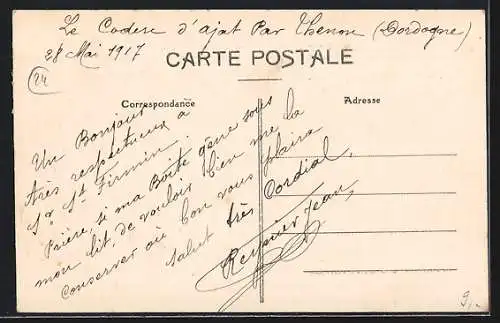 Le Coderc d'ajat Par Thenon (Dordogne)
28 Mai 1917
24
CARTE POSTALE
Correspondance
Adresse
Un Bonjour
très respectueux a
Mr St. Firmin.
Prière, si ma Boite gène sous
mon lit, de vouloir bien me la
Conserver où bon vous plaira
Salut très Cordial,
Jean,